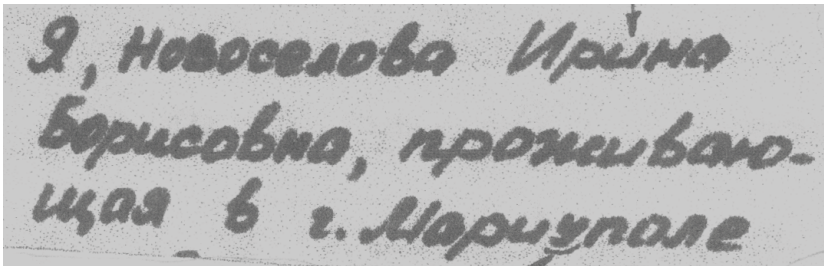 Я, Новоселова Ирина
Борисовна, проживаю-
щая в г. Мариуполе